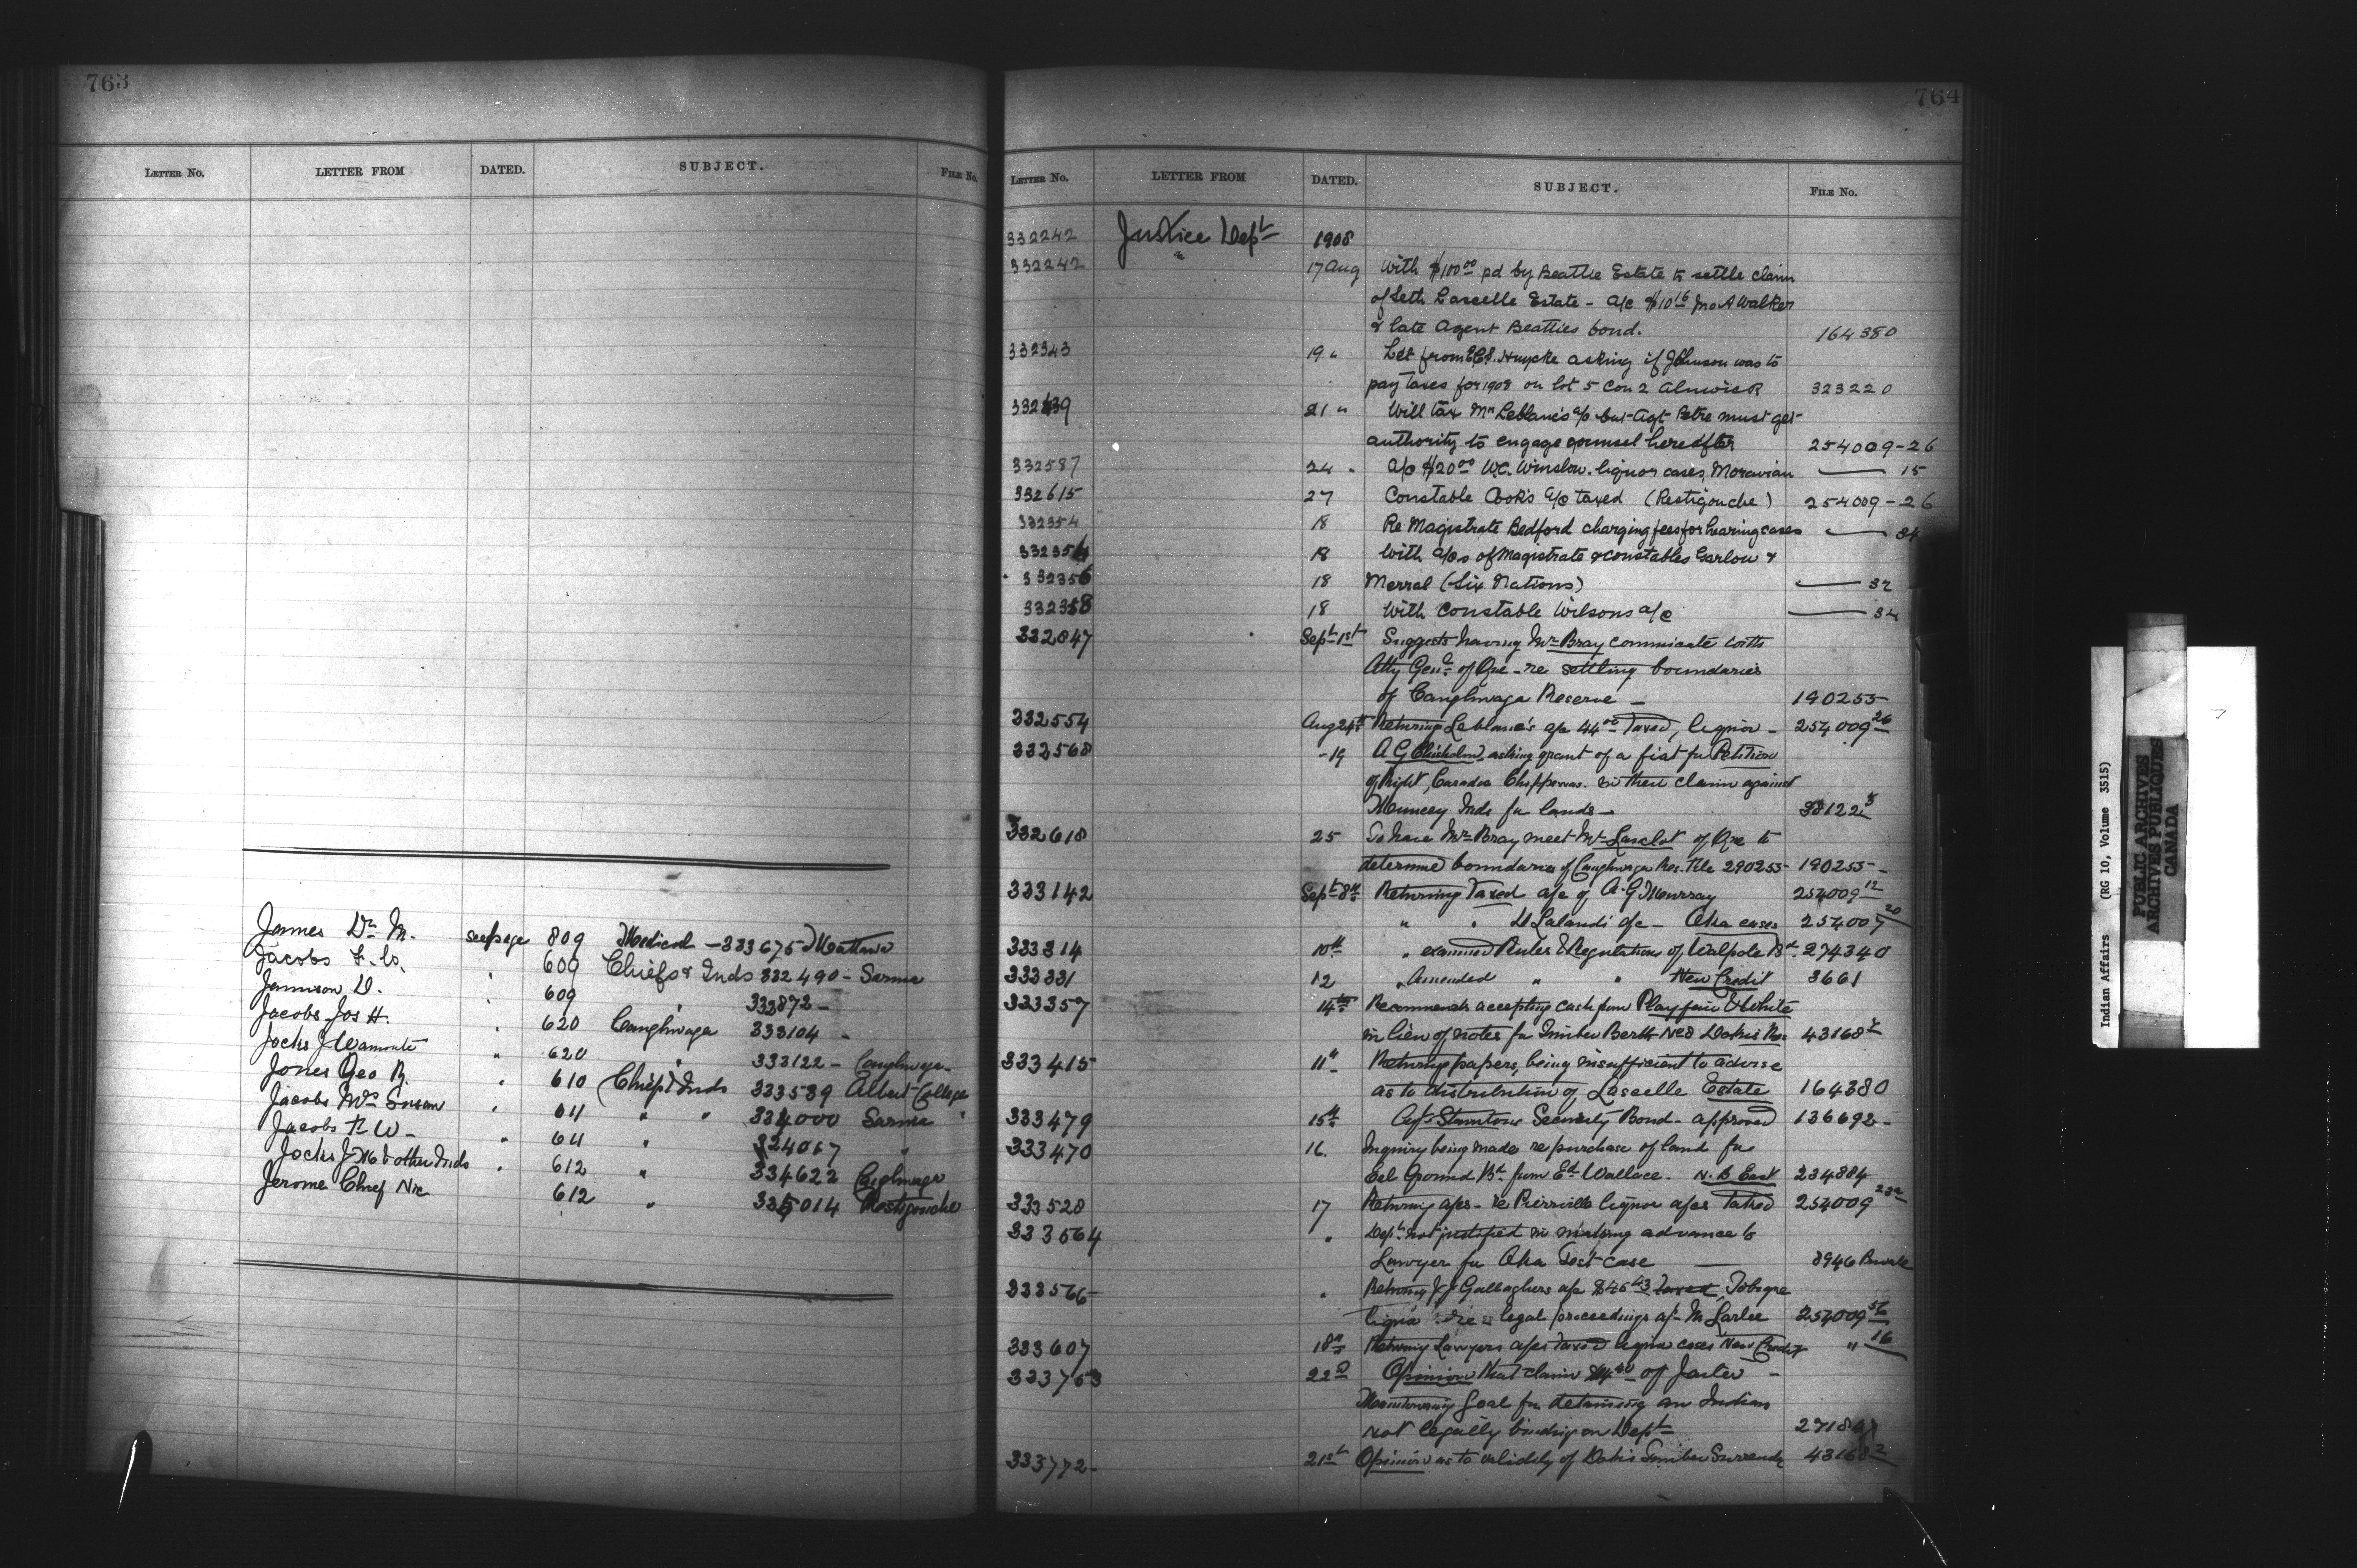 763
LETTER No. LETTER FROM DATED. SUBJECT. FILE No.
James Dr. M. see page 809 Medical - 333675 Mattawa
Jacobs F. W. " 609 Chiefs & Inds 332490 - Sarnia
Jamison D. " 609 " 333872 -
Jacobs Jos H. " 620 Caughnwaga 333104 -
Jocks J Wamonte " 620 " 333122 - Caughnwaga
Jones Geo R. " 610 Chiefs & Inds 333589 Albert College
Jacobs Mrs Susan " 611 " " 334000 Sarnia "
Jacobs F W - " 611 " 324067 "
Jocks J M & other Inds " 612 " 334622 Caghnwaga
Jerome Chief Nic 612 " 335014 Restigouche
764
LETTER No. LETTER FROM DATED. SUBJECT. FILE No.
332242 Justice Dept 1908
332242 " 17 Aug With $100.00 pd by Beattie Estate to settle claim
of Seth Lascelle Estate - a/c $10.16 Jno A Walker
& late Agent Beatties bond. 164380
332343 19 " Let from E.C.S. Huycke asking if Johnson was to
pay taxes for 1908 on lot 5 Con 2 Alnwick 323220
332439 21 " Will tax Mr Leblanc's a/c but Agt Petre must get
authority to engage counsel hereafter 254009-26
332587 24 " a/c $20.00 W.C. Winslow. liquor cases, Moravian —— 15
332615 27 Constable Cook's a/c taxed (Restigouche) 254009-26
332354 18 Re Magistrate Bedford charging fees for hearing cases ——
332354 18 With a/cs of Magistrate & constables Garlow &
332356 18 Merral (Six Nations) —— 32
332358 18 With Constable Wilsons a/c —— 34
332847 Sept 1st Suggests having Mr Bray communicate with
Atty Genl of Que - re settling boundaries
of Caughnwaga Reserve - 190255
332554 Aug 24th Returning Leblanc's a/c 44.00 Taxed, liquor - 254009 26
332568 - 19 A G Chisholm, asking grant of a fiat for Petition
of Right, Caradoc Chippewas. in their claim against
Muncey Inds for lands - 38122
332618 25 To have Mr Bray meet Mr of Que to
determine boundaries of Caughnwaga Res. File 290255 - 190255 -
333142 Sept 8th Returning Taxed a/c of A. G Murray 254009 12
" " D Lalandi a/c - Oka cases 254009 20
333314 10th " examined Rules & Regulations of Walpole Bd. 274340
333331 12 " Amended " " New Credit 3661
333357 14th Recommends accepting cash from Playfair & White
in lieu of notes for Timber Berth No 3 Dokis Res 43168
333415 11th Returning papers, being insufficient to advise
as to distribution of Lascelle Estate 164380
333479 15th Agt Stantons Security Bond - approved 136692 -
333470 16. Inquiry being made re purchase of land for
Eel Ground Bd from Ed Wallace. N. B East 234884
333528 17 Returning a/cs - re Pierreville liquor a/cs Taxed 254009
333564 " Dept. not justified in making advance to
Lawyer for Oka Test case —— 8946 Private
333566 " Returning J J Gallaghers a/c $45.43 taxed, Tobique
liquor legal proceedings a/c M Larlee 254009
333607 18th Returning Lawyers a/cs Taxed liquor cases New Credit " 16
333753 22nd Opinion that claim of Jailer -
Gaol for detaining an Indian
not legally binding on Dept
333772 - 21st Opinion as to validity of Dokis Timber Surrender 43168 2
Indian Affairs (RG 10, Volume 3515)
PUBLIC ARCHIVES
ARCHIVES PUBLIQUES
CANADA